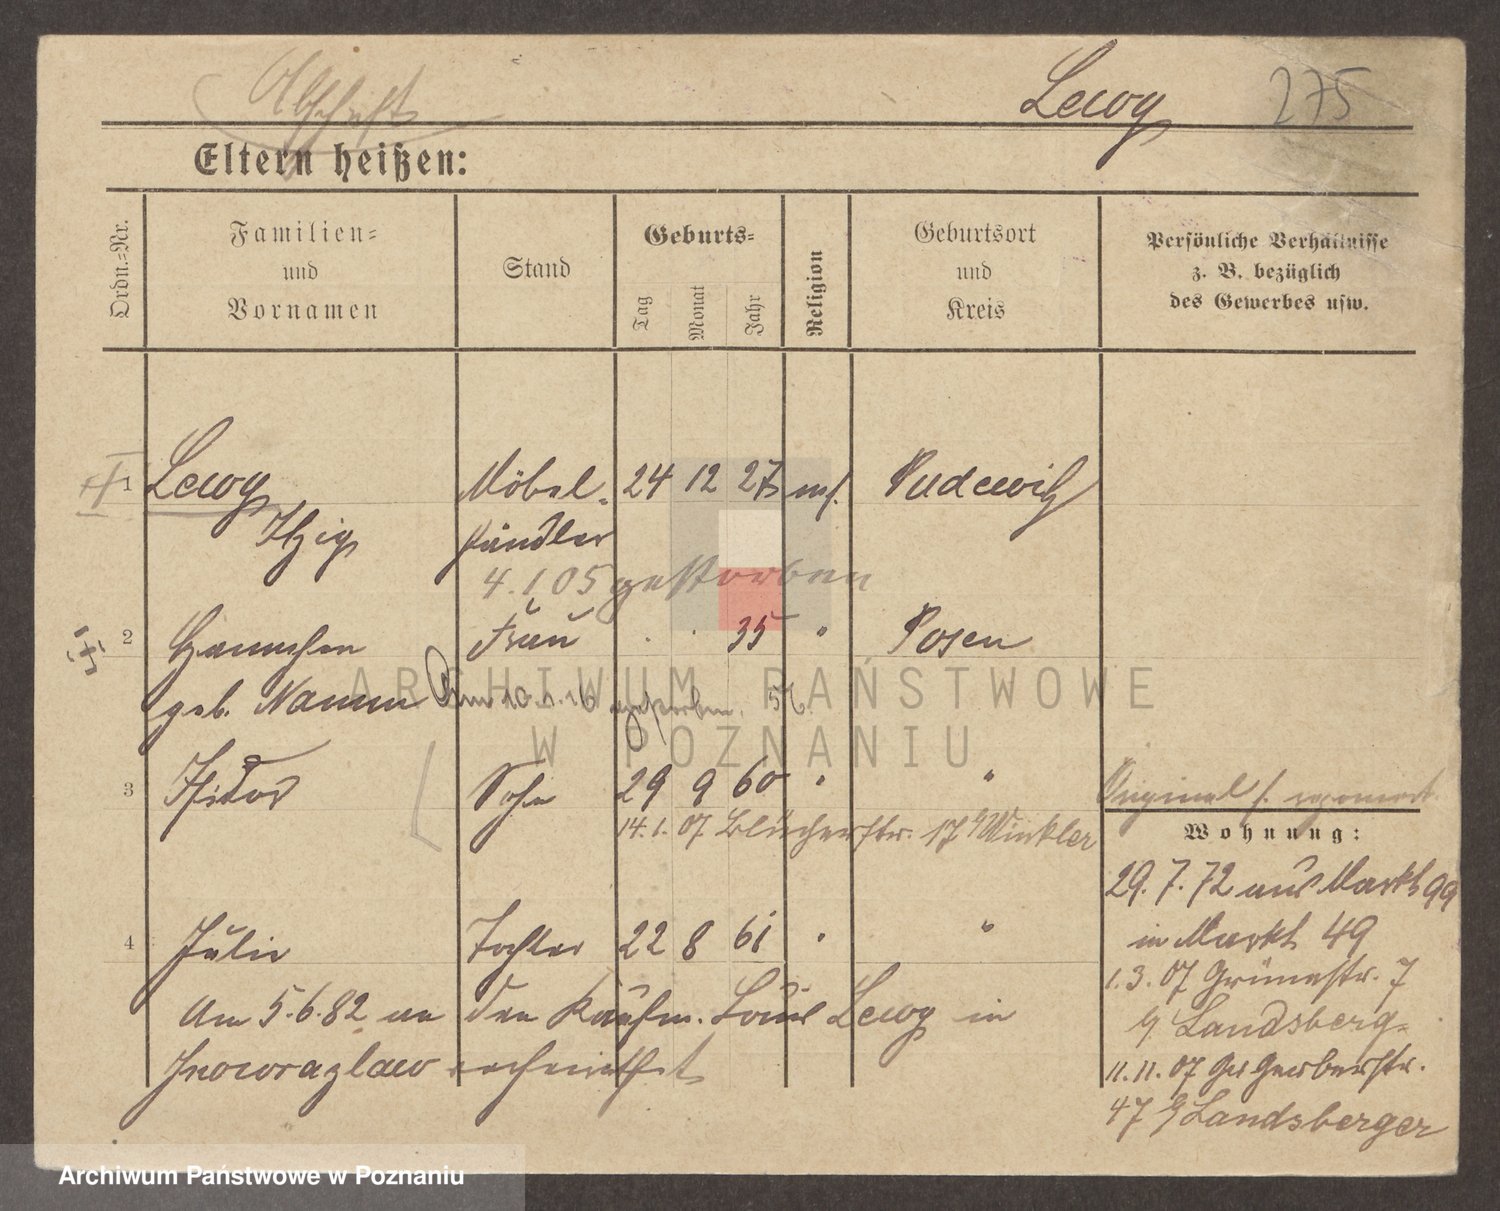 Abschrift
Lewy 275
Eltern heißen:
Ordn.-Nr.
Familien-
und
Vornamen
Stand
Geburts-
Tag
Monat
Jahr
Religion
Geburtsort
und
Kreis
Persönliche Verhältnisse
z. B. bezüglich
des Gewerbes usw.
1 Lewy Möbel- 24 12 27 mos. Pudewitz
Itzig händler
4.1.05 gestorben
2 Hannchen Frau . . 35 " Posen
geb. Namm Am 10.1.16 gestorben.
3 Isidor Sohn 29 9 60 " "
14.1.07 Blücherstr. 17 b/ Winkler
Original f.
Wohnung:
29.7.72 aus Markt 99
in Markt 49
4 Julie Tochter 22 8 61 " "
1.3.07 Grünestr. 7
Am 5.6.82 an den Kaufm. Louis Lewy in
b/ Landsberg-
Inowrazlaw verheirathet
11.11.07 Gr Gerberstr.
47 b/ Landsberger
ARCHIWUM PAŃSTWOWE
W POZNANIU
Archiwum Państwowe w Poznaniu